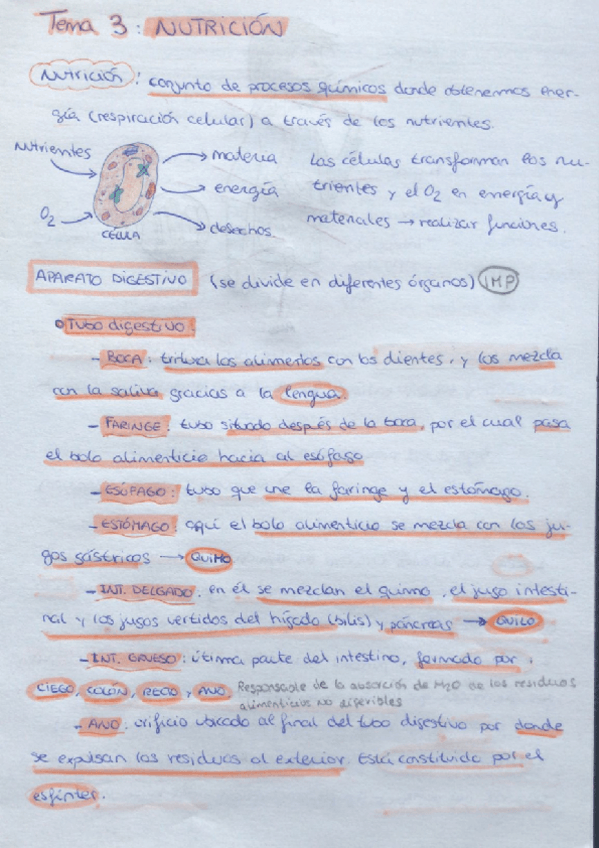 Tema 3: NUTRICIÓN
Nutrición: conjunto de procesos químicos donde obtenemos ener-
gía (respiración celular) a través de los nutrientes.
Nutrientes → materia
→ energía
O2 → desechos
CÉLULA
Las células transforman los nu-
trientes y el O2 en energía y
materiales → realizar funciones.
APARATO DIGESTIVO (se divide en diferentes órganos) IMP
Tubo digestivo:
- BOCA: tritura los alimentos con los dientes, y los mezcla
con la saliva gracias a la lengua.
- FARINGE: tubo situado después de la boca, por el cual pasa
el bolo alimenticio hacia al esófago
- ESÓFAGO: tubo que une la faringe y el estómago.
- ESTÓMAGO: aquí el bolo alimenticio se mezcla con los ju-
gos gástricos → QUIMO
- INT. DELGADO: en él se mezclan el quimo, el jugo intesti-
nal y los jugos vertidos del hígado (bilis) y páncreas → QUILO
- INT. GRUESO: última parte del intestino, formado por:
CIEGO, COLON, RECTO y ANO Responsable de la absorción de H2O de los residuos
alimenticios no digeribles
- ANO: orificio ubicado al final del tubo digestivo por donde
se expulsan los residuos al exterior. Está constituido por el
esfínter.